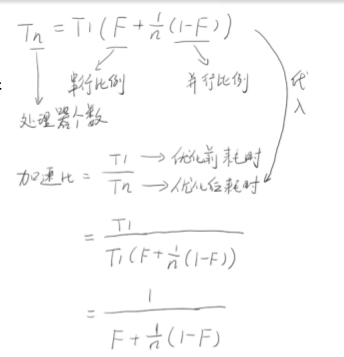 Tn = T1(F + 1/n(1-F))
串行比例 并行比例 代入
处理器个数
加速比 = T1/Tn → 优化前耗时 → 优化后耗时
= T1/T1(F + 1/n(1-F))
= 1/F + 1/n(1-F)